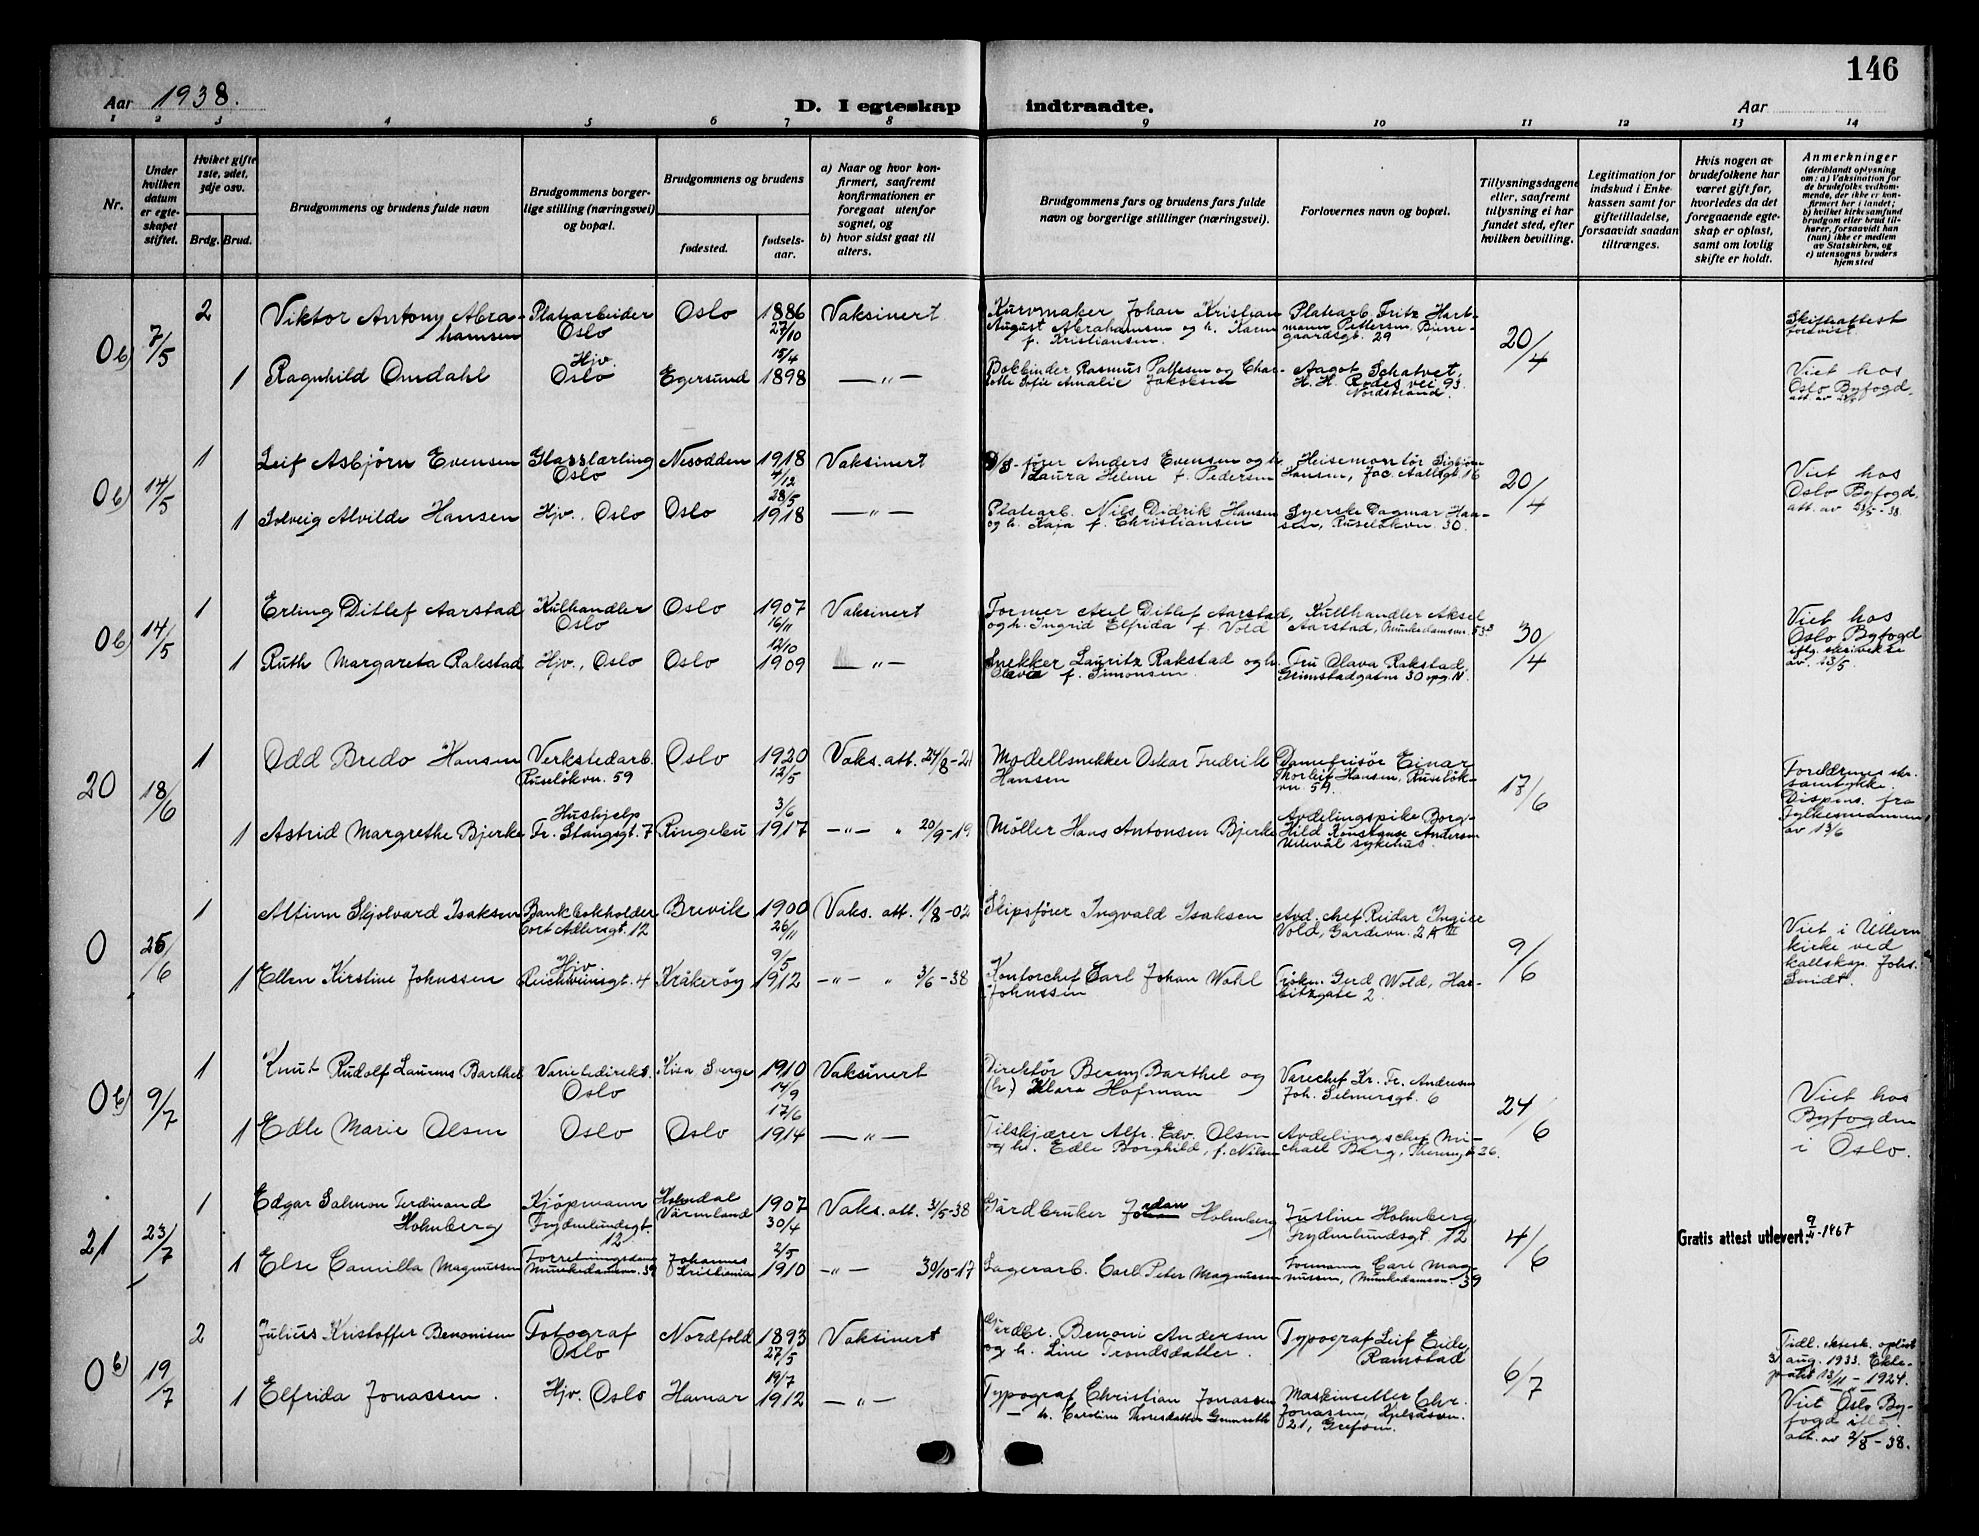 146
Aar 1938.
D. I egteskap indtraadte.
Aar
1 2 3 4 5 6 7 8 9 10 11 12 13 14
Nr.
Under
hvilken
datum
er egte-
skapet
stiftet.
Hvilket gifte
1ste, 2det,
3dje osv.
Brdg. Brud.
Brudgommens og brudens fulde navn
Brudgommens borger-
lige stilling (næringsvei)
og bopæl.
Brudgommens og brudens
fødested.
fødsels-
aar.
a) Naar og hvor kon-
firmert, saafremt
konfirmationen er
foregaat utenfor
sognet, og
b) hvor sidst gaat til
alters.
Brudgommens fars og brudens fars fulde
navn og borgerlige stillinger (næringsvei).
Forlovernes navn og bopæl.
Tillysningsdagene
eller, saafremt
tillysning ei har
fundet sted, efter
hvilken bevilling.
Legitimation for
indskud i Enke-
kassen samt for
giftetilladelse,
forsaavidt saadan
tiltrænges.
Hvis nogen av
brudefolkene har
været gift før,
hvorledes da det
foregaaende egte-
skap er opløst,
samt om lovlig
skifte er holdt.
Anmerkninger
(deriblandt oplysning
om: a) Vaksination for
de brudefolks vedkom-
mende, der ikke er kon-
firmert her i landet;
b) hvilket kirkesamfund
brudgom eller brud til-
hører, forsaavidt han
(hun) ikke er medlem
av Statskirken, og
c) utensogns bruders
hjemsted
0 b) 7/5 2 Viktor Antony Abra-
hamsen
Platearbeider
Oslo
Oslo 1886
27/10
Vaksinert
Kurvmaker Johan Kristian
August Abrahamsen og h. Karen
f. Kristiansen.
Platearb. Fritz Hart-
mann Pettersen,
gaardsgt. 29
20/4
Skifteattest
forevist.
1 Ragnhild Omdahl
Hjv.
Oslo
Egersund 15/4
1898
— " —
Bokbinder Rasmus Pallesen og Char-
lotte Sofie Amalie Jakobsen
Aagot Schatvet,
H. H. Rodes vei 93
Nordstrand.
Viet hos
Oslo Byfogd.
0 b) 14/5 1 Leif Asbjørn Evensen
Glasslærling
Oslo
Nesodden 1918
4/12
Vaksinert
fører Anders Evensen og h.
Laura Helene f. Pedersen
Heisemontør Sigbjørn
Hansen, Jac. Aallsgt. 16
20/4
Viet hos
Oslo Byfogd.
att. av 23/5-38.
1 Solveig Alvilde Hansen
Hjv., Oslo
Oslo 28/5
1918
— " —
Platearb. Nils Didrik Hansen
og h. Kaja f. Christiansen
Syerske Dagmar Han-
sen, Ruseløkvn. 30.
0 b) 14/5 1 Erling Ditlef Aarstad
Kulhandler
Oslo
Oslo 1907
16/11
Vaksinert
Former Axel Ditlef Aarstad,
og h. Ingrid Elfrida f. Vold
Kullhandler Aksel
Aarstad, Munkedamsvn. 53
30/4
Viet hos
Oslo Byfogd
iflg. skrivelse
av. 13/5.
1 Ruth Margareta Rakstad
Hjv., Oslo
Oslo 12/10
1909
— " —
Snekker Lauritz Rakstad og h.
Olava f. Simonsen.
Fru Olava Rakstad,
Grimstadgaten 30 opg. IV.
20 18/6 1 Odd Bredo Hansen
Verkstedarb.
Ruseløkvn. 59
Oslo 1920
12/5
Vaks. att. 24/8-21
Modellsnekker Oskar Fredrik
Hansen
Damefrisør Einar
Thorleif Hansen, Ruseløk-
vn. 59.
17/6
Foreldrenes skr.
samtykke.
Dispens. fra
fylkesmannen
av 13/6
1 Astrid Margrethe Bjerke
Hushjelp
Fr. Stangsgt. 7
Ringebu 3/6
1917
— " — " 20/9-19
Møller Hans Antonsen Bjerke
Avdelingspike Borg-
hild Konstanse Andersen
Ullevål sykehus.
0 25/6 1 Altinn Skjolvard Isaksen
Bankbokholder
Cort Adlersgt. 12
Brevik 1900
26/11
Vaks. att. 1/8-02
Skipsfører Ingvald Isaksen
Avd. chef Reidar
Vold, Gardevn. 2A III
9/6
Viet i Ullern
kirke ved
kallskap. Johs.
Smidt.
1 Ellen Kirstine Johnssen
Hjv
Reichweinsgt. 4
Kråkerøy 9/5
1912
— " — " 3/6-38
Kontorchef Carl Johan Wahl
Johnssen
Frøken Gerd Wold, Har-
bitzgate 2.
0 b) 9/7 1 Knut Rudolf Laurens Barthel
Varietedirekt.
Oslo
Kisa Sverge 1910
14/9
Vaksinert
Direktør Benny Barthel og
(h.) Klara Hofman
Varechef Kr. Fr. Andresen
Joh. Selmersgt. 6
24/6
Viet hos
Byfogden
i Oslo.
1 Edle Marie Olsen
Oslo
Oslo 17/6
1914
— " —
Tilskjærer Alfr. Edv. Olsen
og h. Edle Borghild, f. Nilsen
Avdelingschef Mi-
chael Berg, 26.
21 23/7 1 Edgar Salmon Ferdinand
Holmberg
Kjøpmann
Frydenlundsgt.
12
Holmdal
Värmland
1907
30/4
Vaks. att. 31/5-38
Gårdbruker Johan Holmberg
Justine Holmberg
Frydenlundsgt. 12
4/6
Gratis attest utlevert. 9/11-1967
1 Else Camilla Magnussen
Forretningsdame
Munkedamsvn. 39
Johannes
Kristiania
2/5
1910
— " — 30/10-17
Lagerarb. Carl Peter Magnussen
Formann Carl Mag-
nussen, Munkedamsvn. 39
0 b) 19/7 2 Julius Kristoffer Benonisen
Fotograf
Oslo
Nordfold 1893
27/5
Vaksinert
Gårdbr. Benoni Andersen
og h. Line Trondsdatter.
Typograf Leif Eide,
Ramstad
6/7
Tidl. ektesk. opløst
31 aug. 1933. Ekte-
pakt 13/11-1924.
Viet Oslo By-
fogd iflg.
att. av 2/8-38.
1 Elfrida Jonassen.
Hjv. Oslo
Hamar 19/7
1912
— " —
Typograf Christian Jonassen
— h. Caroline Thoresdatter Grunseth
Maskinsetter Chr.
Jonassen, Kjelsåsvn.
21, Grefsen.